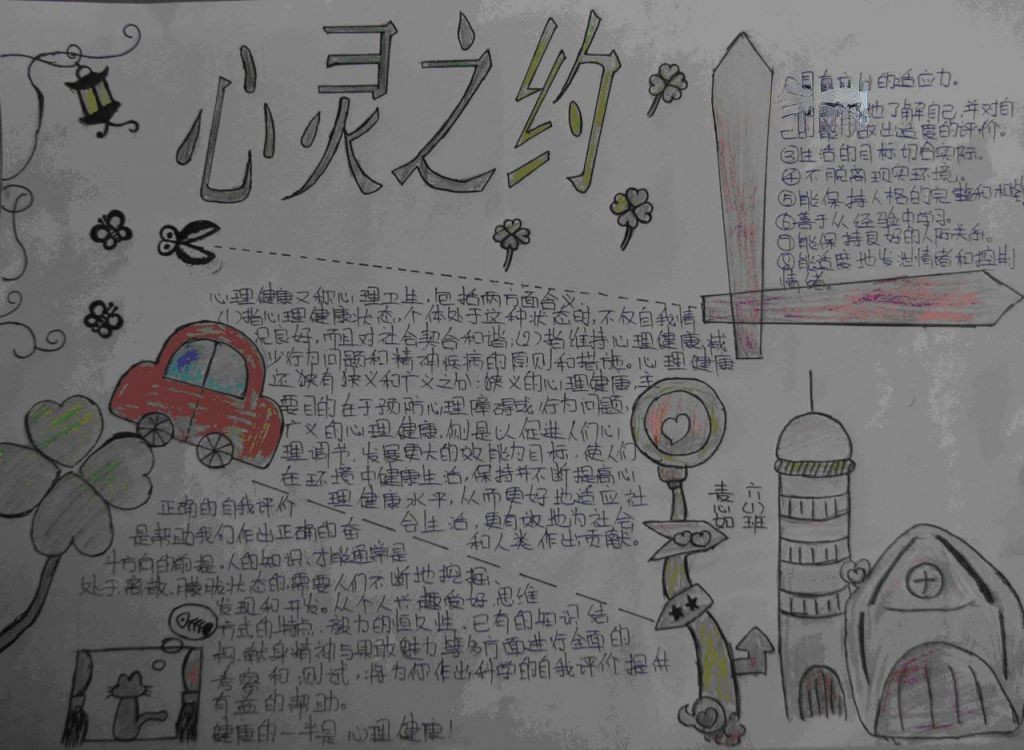 心灵之约
的适应力。
地了解自己,并对自
己的能力做出适度的评价。
③生活的目标切合实际。
④不脱离现实环境。
⑤能保持人格的完整和和谐
⑥善于从经验中学习。
⑦能保持良好的人际关系。
⑧能适度地发泄情绪和控制
情绪。
心理健康又称心理卫生,包括两方面含义:
(1)指心理健康状态,个体处于这种状态时,不仅自我情
况良好,而且对社会契合和谐;(2)指维持心理健康,减
少行为问题和精神疾病的原则和措施。心理健康
还狭有狭义和广义之分:狭义的心理健康,主
要目的在于预防心理障碍或行为问题,
广义的心理健康,则是以促进人们心
理调节,发展更大的效能为目标,使人们
在环境中健康生活,保持并不断提高心
理健康水平,从而更好地适应社
会生活,更有效地为社会
和人类作出贡献。
六(1)班
正确的自我评价
是帮助我们作出正确的奋
斗方向的前提,人的知识、才能通常是
处于离散、朦胧状态的需要人们不断地挖掘、
发现和开发。从个人兴趣爱好,思维
方式的特点、毅力的恒久性,已有的知识结
构,献身精神与果敢魅力等多方面进行全面的
考察和测试,将为你作出科学的自我评价提供
有益的帮助。
健康的一半是心理健康!